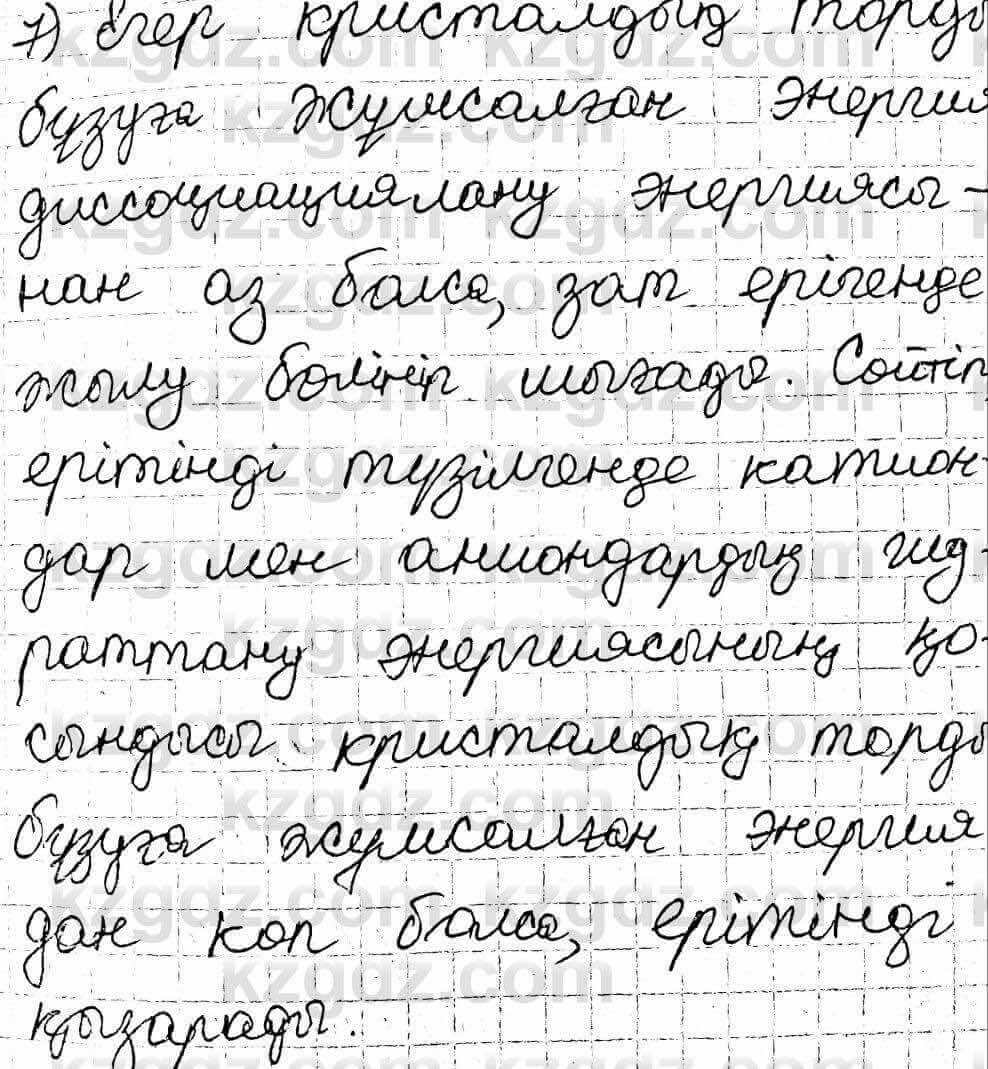 7) Егер кристалдық торды
бұзуға жұмсалған энергия
диссоциациялану энергиясы-
нан аз болса, зат ерігенде
жылу бөлініп шығады. Сөйтіп,
ерітінді түзілгенде катион-
дар мен аниондардың гид-
раттану энергиясының қо-
сындысы кристалдық торды
бұзуға жұмсалған энергия
дан көп болса, ерітінді
қызарады.